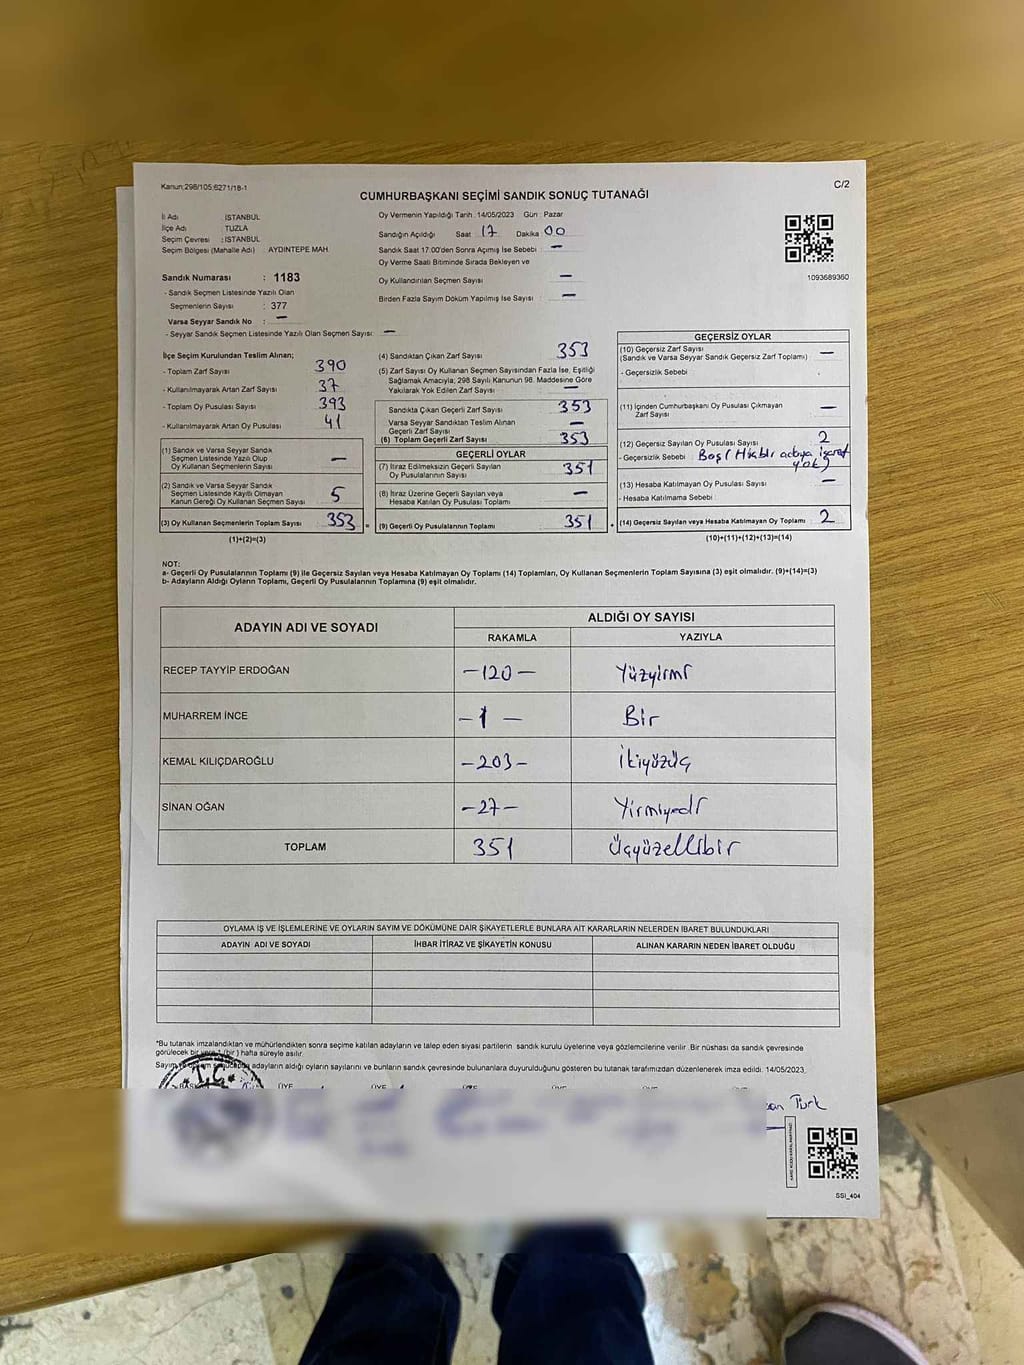 Kanun;298/105;6271/18-1
C/2
CUMHURBAŞKANI SEÇİMİ SANDIK SONUÇ TUTANAĞI
İl Adı : İSTANBUL
İlçe Adı : TUZLA
Seçim Çevresi : İSTANBUL
Seçim Bölgesi (Mahalle Adı) : AYDINTEPE MAH.
Sandık Numarası : 1183
- Sandık Seçmen Listesinde Yazılı Olan
Seçmenlerin Sayısı : 377
Varsa Seyyar Sandık No : —
- Seyyar Sandık Seçmen Listesinde Yazılı Olan Seçmen Sayısı: —
Oy Vermenin Yapıldığı Tarih : 14/05/2023 Gün : Pazar
Sandığın Açıldığı Saat : 17 Dakika : 00
Sandık Saat 17:00'den Sonra Açımış İse Sebebi : —
Oy Verme Saati Bitiminde Sırada Bekleyen ve
Oy Kullandırılan Seçmen Sayısı : —
Birden Fazla Sayım Döküm Yapılmış İse Sayısı : —
1093689360
İlçe Seçim Kurulundan Teslim Alınan;
- Toplam Zarf Sayısı 390
- Kullanılmayarak Artan Zarf Sayısı 37
- Toplam Oy Pusulası Sayısı 393
- Kullanılmayarak Artan Oy Pusulası 41
(1) Sandık ve Varsa Seyyar Sandık
Seçmen Listesinde Yazılı Olup
Oy Kullanan Seçmenlerin Sayısı —
(2) Sandık ve Varsa Seyyar Sandık
Seçmen Listesinde Kayıtlı Olmayan
Kanun Gereği Oy Kullanan Seçmen Sayısı 5
(3) Oy Kullanan Seçmenlerin Toplam Sayısı 353 =
(1)+(2)=(3)
(4) Sandıktan Çıkan Zarf Sayısı 353
(5) Zarf Sayısı Oy Kullanan Seçmen Sayısından Fazla İse, Eşitliği
Sağlamak Amacıyla, 298 Sayılı Kanunun 98. Maddesine Göre
Yakılarak Yok Edilen Zarf Sayısı —
Sandıkta Çıkan Geçerli Zarf Sayısı 353
Varsa Seyyar Sandıktan Teslim Alınan
Geçerli Zarf Sayısı —
(6) Toplam Geçerli Zarf Sayısı 353
GEÇERLİ OYLAR
(7) İtiraz Edilmeksizin Geçerli Sayılan
Oy Pusulalarının Sayısı 351
(8) İtiraz Üzerine Geçerli Sayılan veya
Hesaba Katılan Oy Pusulası Toplamı —
(9) Geçerli Oy Pusulalarının Toplamı 351 +
GEÇERSİZ OYLAR
(10) Geçersiz Zarf Sayısı
(Sandık ve Varsa Seyyar Sandık Geçersiz Zarf Toplamı) —
- Geçersizlik Sebebi :
(11) İçinden Cumhurbaşkanı Oy Pusulası Çıkmayan
Zarf Sayısı —
(12) Geçersiz Sayılan Oy Pusulası Sayısı 2
- Geçersizlik Sebebi : Boş (Hiçbir adaya işaret
yok)
(13) Hesaba Katılmayan Oy Pusulası Sayısı —
- Hesaba Katılmama Sebebi :
(14) Geçersiz Sayılan veya Hesaba Katılmayan Oy Toplamı 2
(10)+(11)+(12)+(13)=(14)
NOT:
a- Geçerli Oy Pusulalarının Toplamı (9) ile Geçersiz Sayılan veya Hesaba Katılmayan Oy Toplamı (14) Toplamları, Oy Kullanan Seçmenlerin Toplam Sayısına (3) eşit olmalıdır. (9)+(14)=(3)
b- Adayların Aldığı Oyların Toplamı, Geçerli Oy Pusulalarının Toplamına (9) eşit olmalıdır.
ADAYIN ADI VE SOYADI ALDIĞI OY SAYISI
RAKAMLA YAZIYLA
RECEP TAYYİP ERDOĞAN —120— Yüzyirmi
MUHARREM İNCE —1— Bir
KEMAL KILIÇDAROĞLU —203— İkiyüzüç
SİNAN OĞAN —27— Yirmiyedi
TOPLAM 351 Üçyüzellibir
OYLAMA İŞ VE İŞLEMLERİNE VE OYLARIN SAYIM VE DÖKÜMÜNE DAİR ŞİKAYETLERLE BUNLARA AİT KARARLARIN NELERDEN İBARET BULUNDUKLARI
ADAYIN ADI VE SOYADI İHBAR İTİRAZ VE ŞİKAYETİN KONUSU ALINAN KARARIN NEDEN İBARET OLDUĞU
*Bu tutanak imzalandıktan ve mühürlendikten sonra seçime katılan adayların ve talep eden siyasi partilerin sandık kurulu üyelerine veya gözlemcilerine verilir. Bir nüshası da sandık çevresinde
görülecek bir yere 1 (bir) hafta süreyle asılır.
adayların aldığı oyların sayılarını ve bunların sandık çevresinde bulunanlara duyurulduğunu gösteren bu tutanak tarafımızdan düzenlenerek imza edildi. 14/05/2023,
T.C.
ÜYE ÜYE
Türk
SSI_404